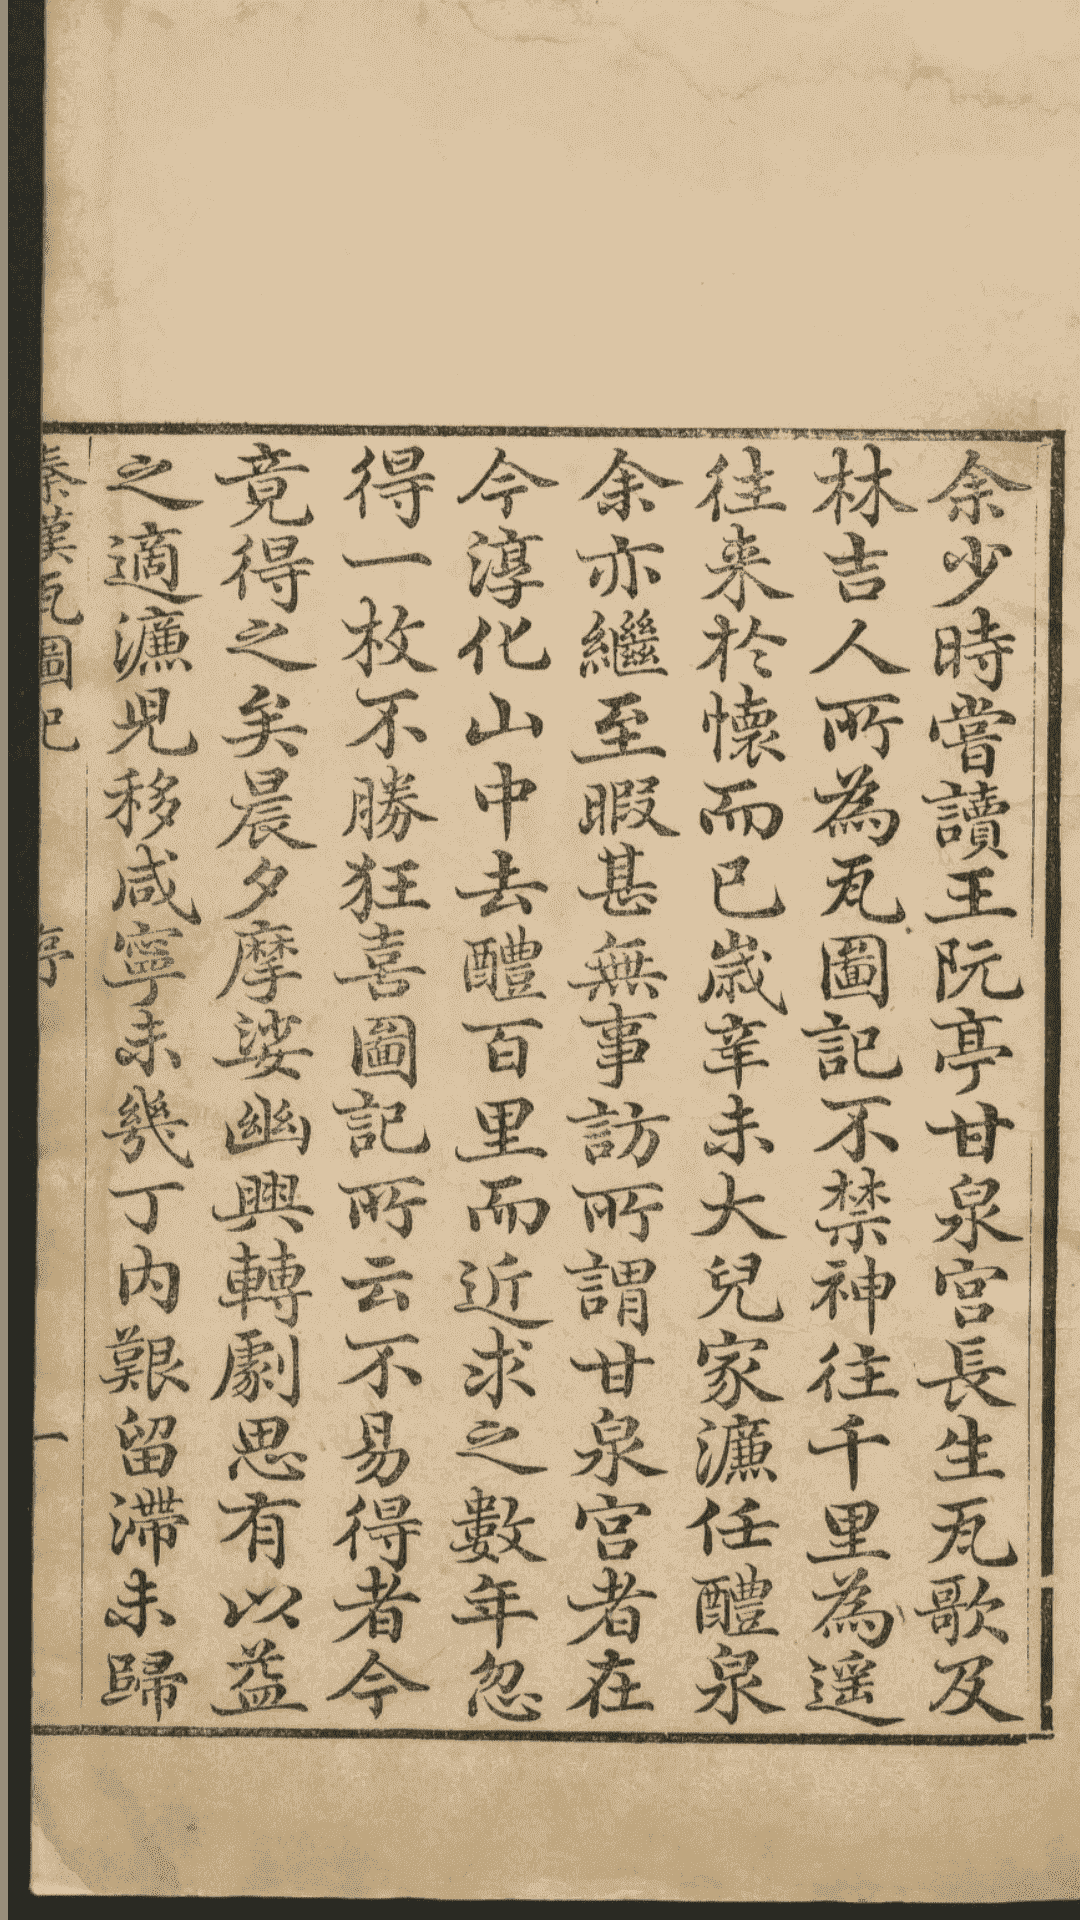 余少時嘗讀王阮亭甘泉宮長生瓦歌及
林吉人所為瓦圖記不禁神往千里為遥
徃来於懐而已歲辛未大兒家濂任醴泉
余亦繼至暇甚無事訪所謂甘泉宮者在
今淳化山中去醴百里而近求之數年忽
得一枚不勝狂喜圖記所云不易得者今
竟得之矣晨夕摩娑幽興轉劇思有以益
之適濂児移咸寧未幾丁内艱留滯未歸
秦漢瓦圖記 序 一